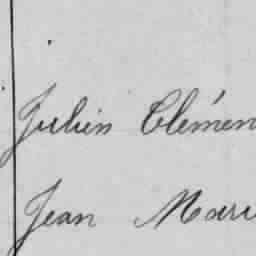 Julien Clémen
Jean Mari